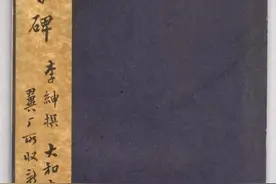 碑
李紳撰 大和
翼厂所收